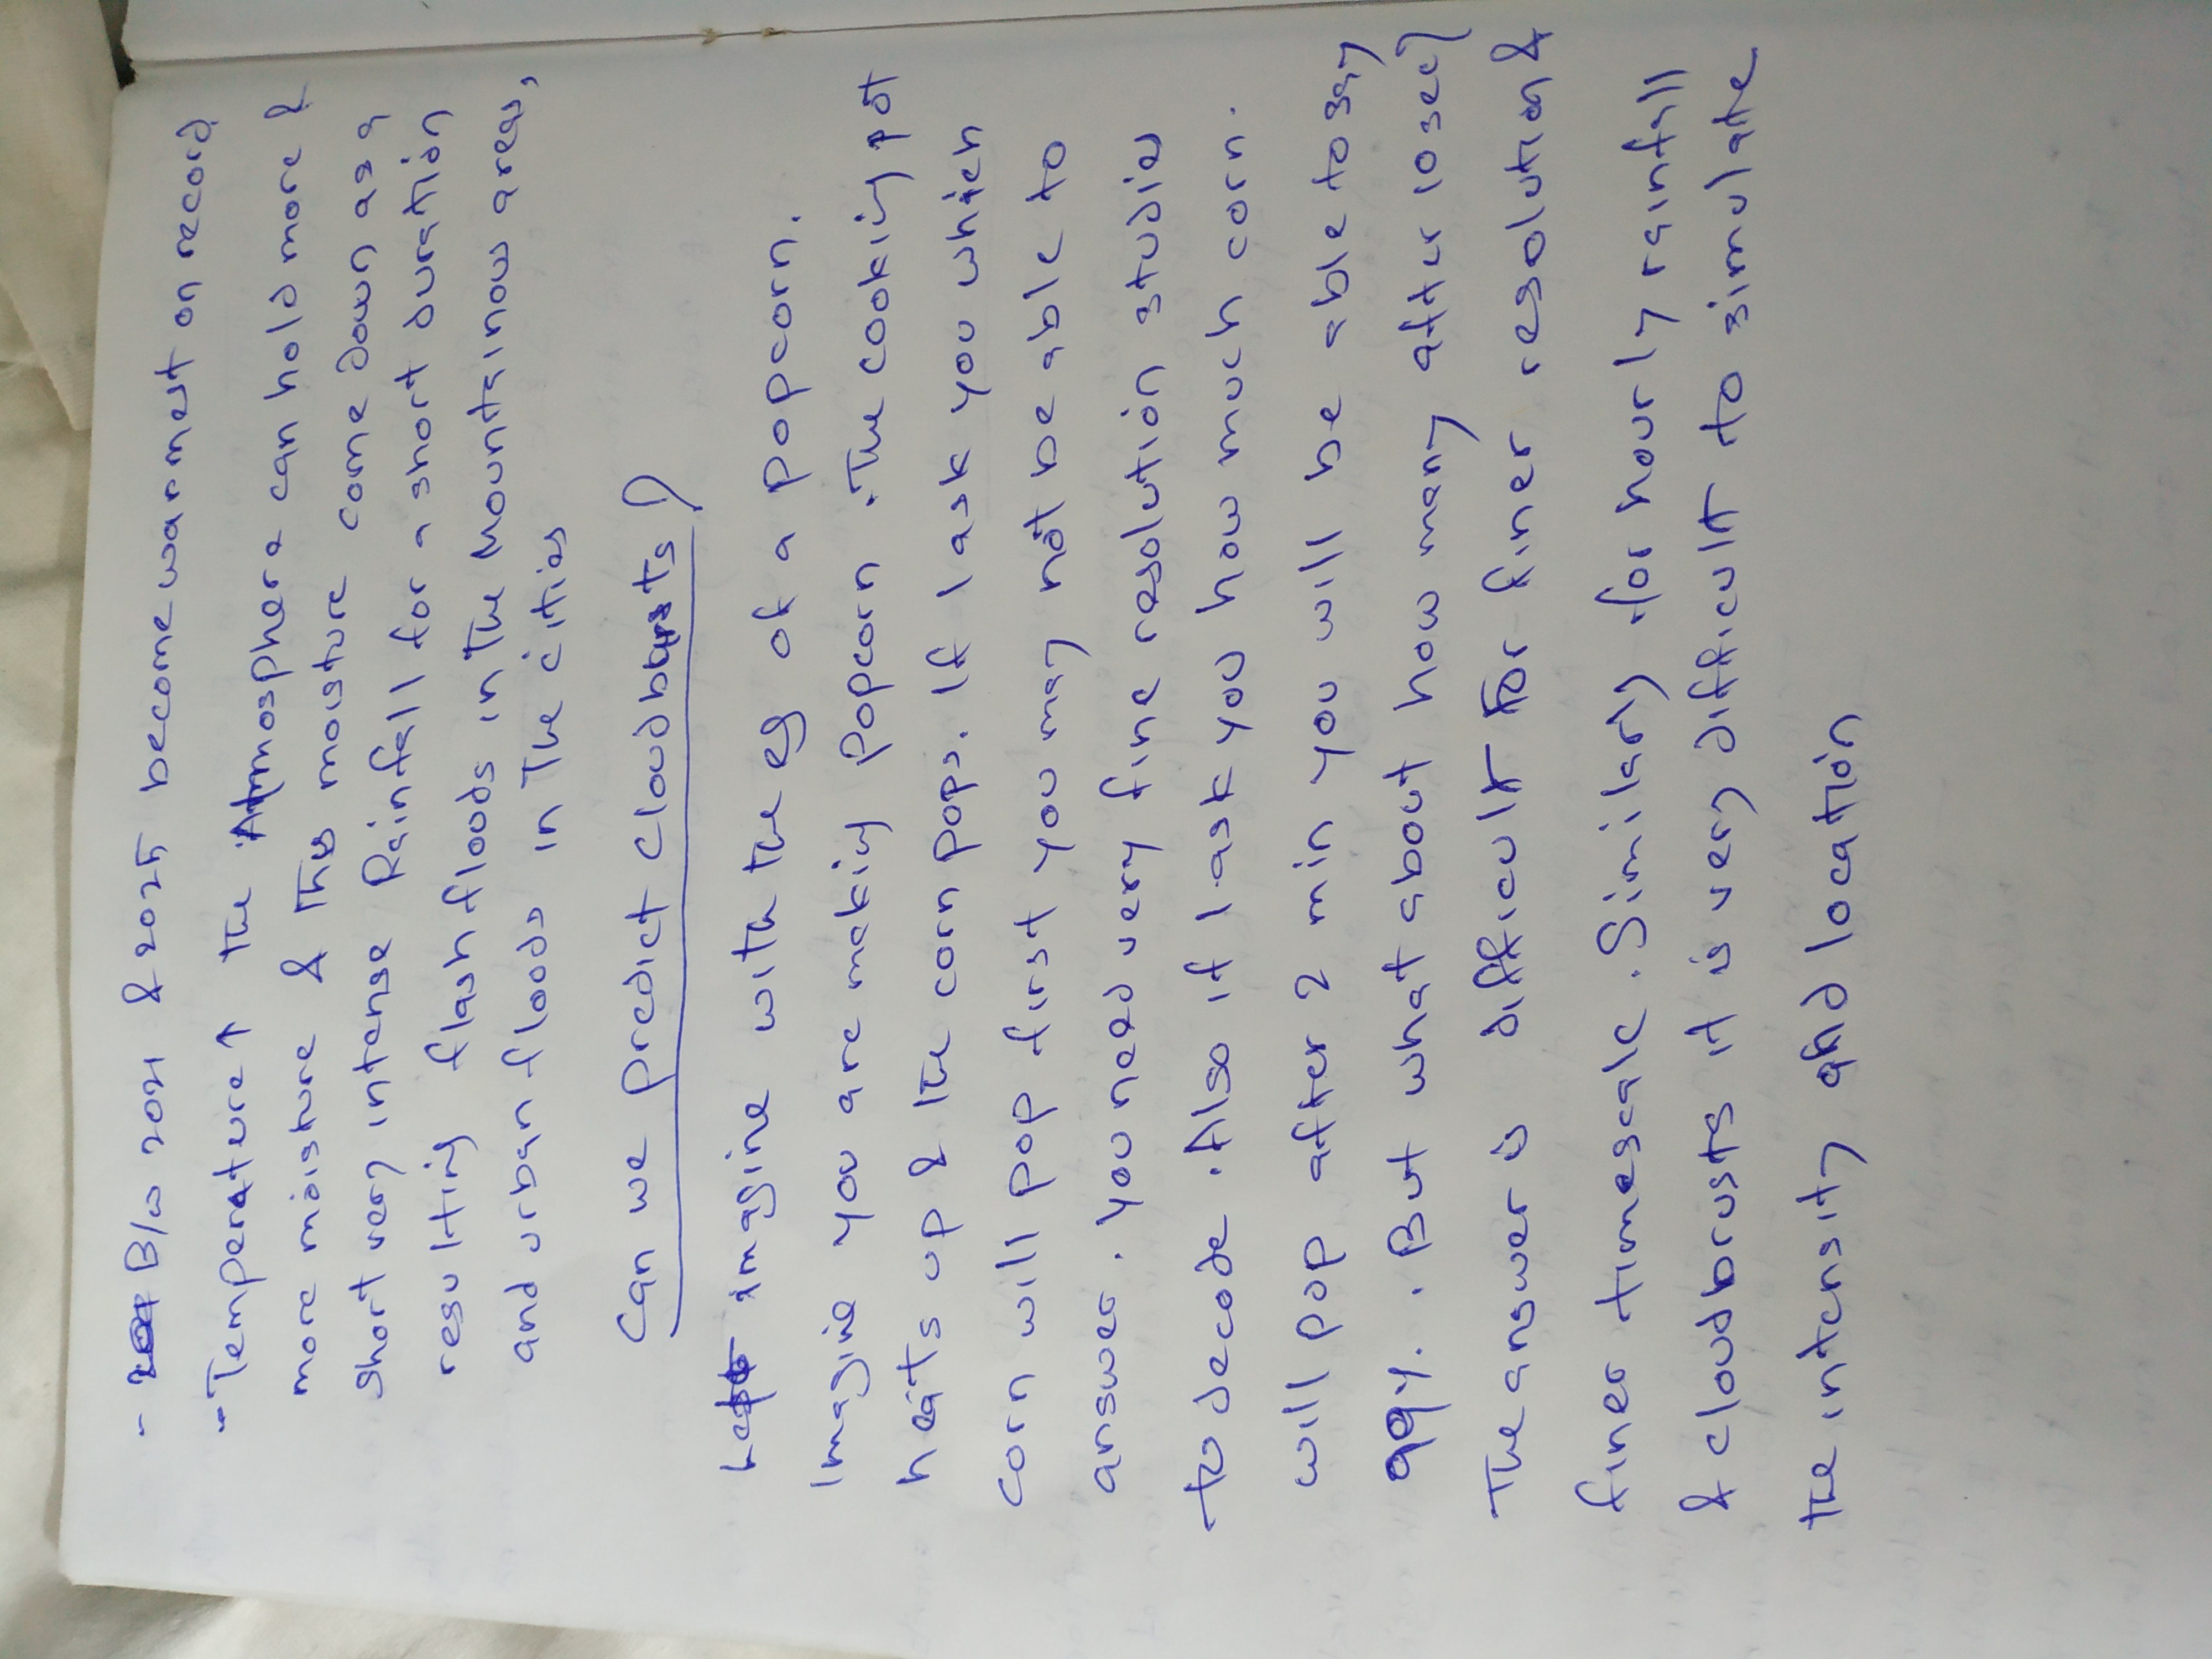 - B/w 2021 & 2025 become warmest on record
- Temperature ↑ the Atmosphere can hold more &
more moisture & this moisture come down as a
short very intense Rainfall for a short duration
resulting flash floods in the Mountainous areas,
and urban floods in the cities
Can we predict cloudbursts?
imagine with the eg of a popcorn.
Imagine you are making popcorn. The cooking pot
heats up & the corn pops. If I ask you which
corn will pop first you may not be able to
answer. You need very fine resolution studies
to decode. Also if I ask you how much corn.
will pop after 2 min you will be able to say
99%. But what about how many after 10 sec?
The answer is difficult for finer resolution &
finer timescale. Similarly for hourly rainfall
& cloudbrusts it is very difficult to simulate
the intensity and location